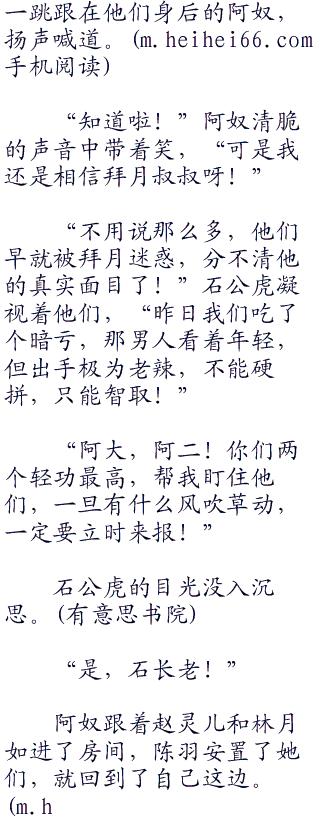 一跳跟在他们身后的阿奴，
扬声喊道。(m.heihei66.com
手机阅读)
“知道啦！”阿奴清脆
的声音中带着笑，“可是我
还是相信拜月叔叔呀！”
“不用说那么多，他们
早就被拜月迷惑，分不清他
的真实面目了！”石公虎凝
视着他们，“昨日我们吃了
个暗亏，那男人看着年轻，
但出手极为老辣，不能硬
拼，只能智取！”
“阿大，阿二！你们两
个轻功最高，帮我盯住他
们，一旦有什么风吹草动，
一定要立时来报！”
石公虎的目光没入沉
思。(有意思书院)
“是，石长老！”
阿奴跟着赵灵儿和林月
如进了房间，陈羽安置了她
们，就回到了自己这边。
(m.h